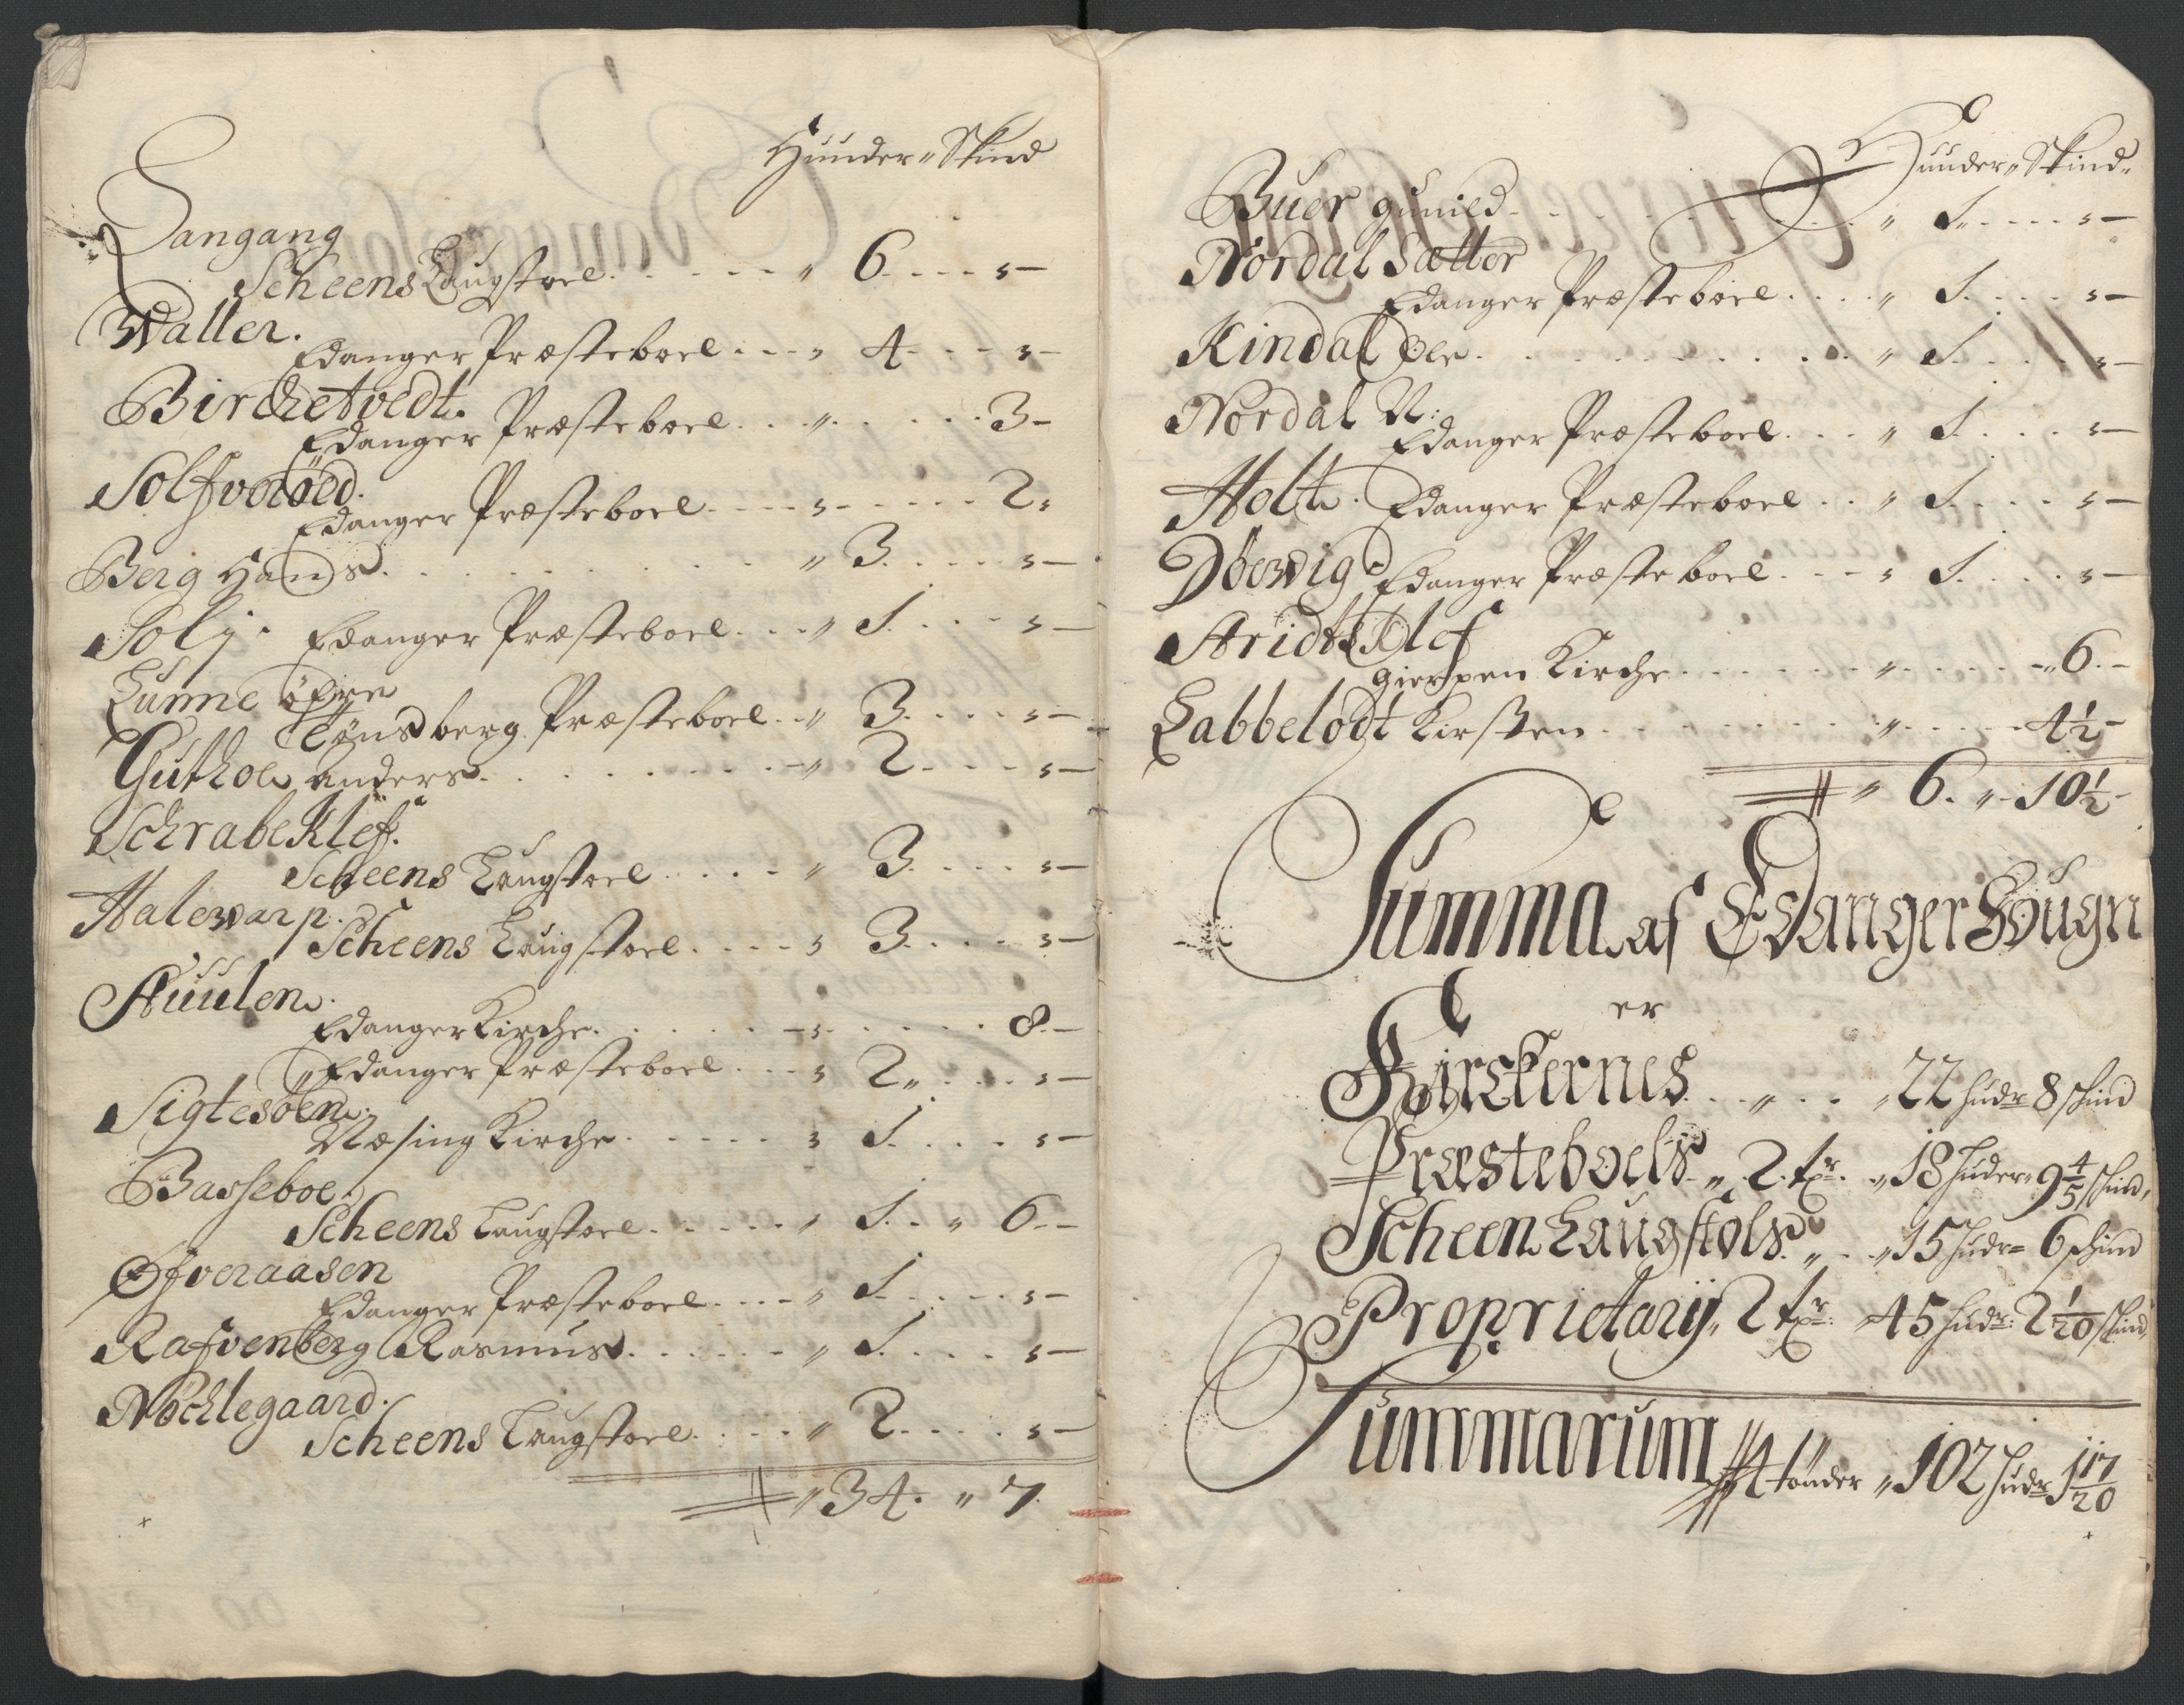 Huuder „ Skind
Langang
Scheens Laugstoel „ 6 „ –
Waller.
Edanger Præsteboel „ 4 „ –
Birchetvedt.
Edanger Præsteboel „ 3 –
Solfverød.
Edanger Præsteboel „ 2 „
Berg Hans „ 3 „ –
Solj. Edanger Præsteboel „ 1 „ –
Lunne øfre
Tønsberg Præsteboel „ 3 „ –
Guthoe anders „ 2 „ –
Schrabeklef.
Scheens Laugstoel „ 3 „ –
Halewarp.
Scheens Laugstoel „ 3 „ –
Huulen.
Edanger Kirche „ 8 –
Edanger Præsteboel „ 2 „ –
Sigtesøen.
Næsing Kirche „ 1 „ –
Basseboe.
Scheens Laugstoel „ 1 „ 6 –
Øfveraasen
Edanger Præsteboel „ 1 „ –
Rafvenberg Rasmus „ 1 „ –
Nøchlegaard.
Scheens Laugstoel „ 2 „ –
„ 34 „ 7
Huuder „ Skind
Buer gunild „ 1 „ –
Nordal Sætter
Edanger Præsteboel „ 1 „ –
Kindal Ole „ 1 „ –
Nordal N:
Edanger Præsteboel „ 1 „ –
Holt. Edanger Præsteboel „ 1 „ –
Døewig Edanger Præsteboel „ 1 „ –
Aridtz Klef
Gierpen Kirche „ 6 –
Labbelødt Kirsten „ 4½ –
„ 6 „ 10½ –
Summa af Edanger Sougn
er
Kirckernes „ 22 hudr 8 skind
Præsteboels „ 2 tr. „ 18 huder „ 9 4/5 skind,
Scheen Laugstols „ 15 hudr 6 skind
Proprietarij „ 2 tr. 45 hudr: 2 1/20 skind
Summarum 4 tønder „ 102 hudr 1 17/20